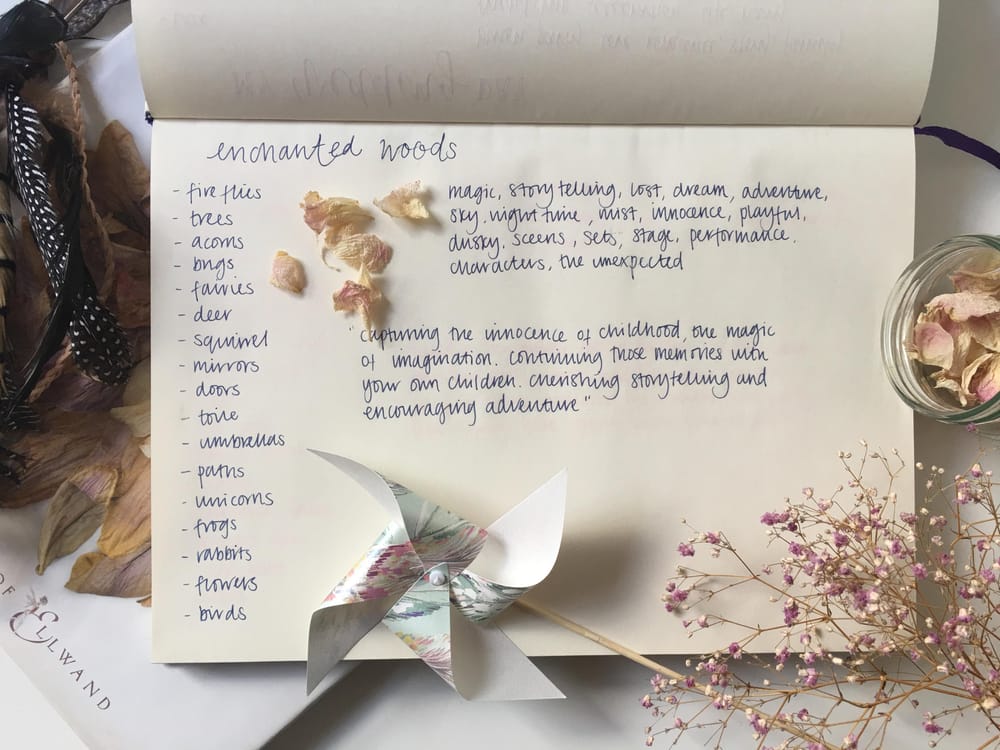 enchanted woods
- fireflies
- trees
- acorns
- bugs
- fairies
- deer
- squirrel
- mirrors
- doors
- toile
- umbrellas
- paths
- unicorns
- frogs
- rabbits
- flowers
- birds
magic, storytelling, lost, dream, adventure,
sky. night time, mist, innocence, playful,
dusky. sceens, sets, stage, performance.
characters, the unexpected
"capturing the innocence of childhood, the magic
of imagination. continuing those memories with
your own children. cherishing storytelling and
encouraging adventure"
OF ELLWAND